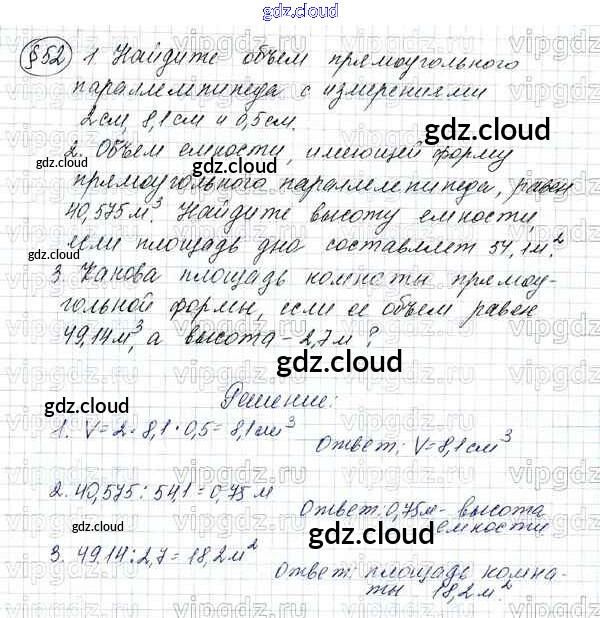 gdz.cloud
§52 1 Найдите объем прямоугольного
параллелепипеда с измерениями
2см, 8,1см и 0,5см.
2. Объем емкости, имеющей форму
прямоугольного параллелепипеда, равен
40,575м³. Найдите высоту емкости,
если площадь дна составляет 54,1м².
3. Какова площадь комнаты прямоу-
гольной формы, если ее объем равен
49,14м³, а высота - 2,7м?
Решение:
1. V=2·8,1·0,5=8,1см³
Ответ: V=8,1см³
2. 40,575:54,1=0,75м
Ответ: 0,75м- высота
емкости
3. 49,14:2,7=18,2м²
Ответ: площадь комна-
ты 18,2м².